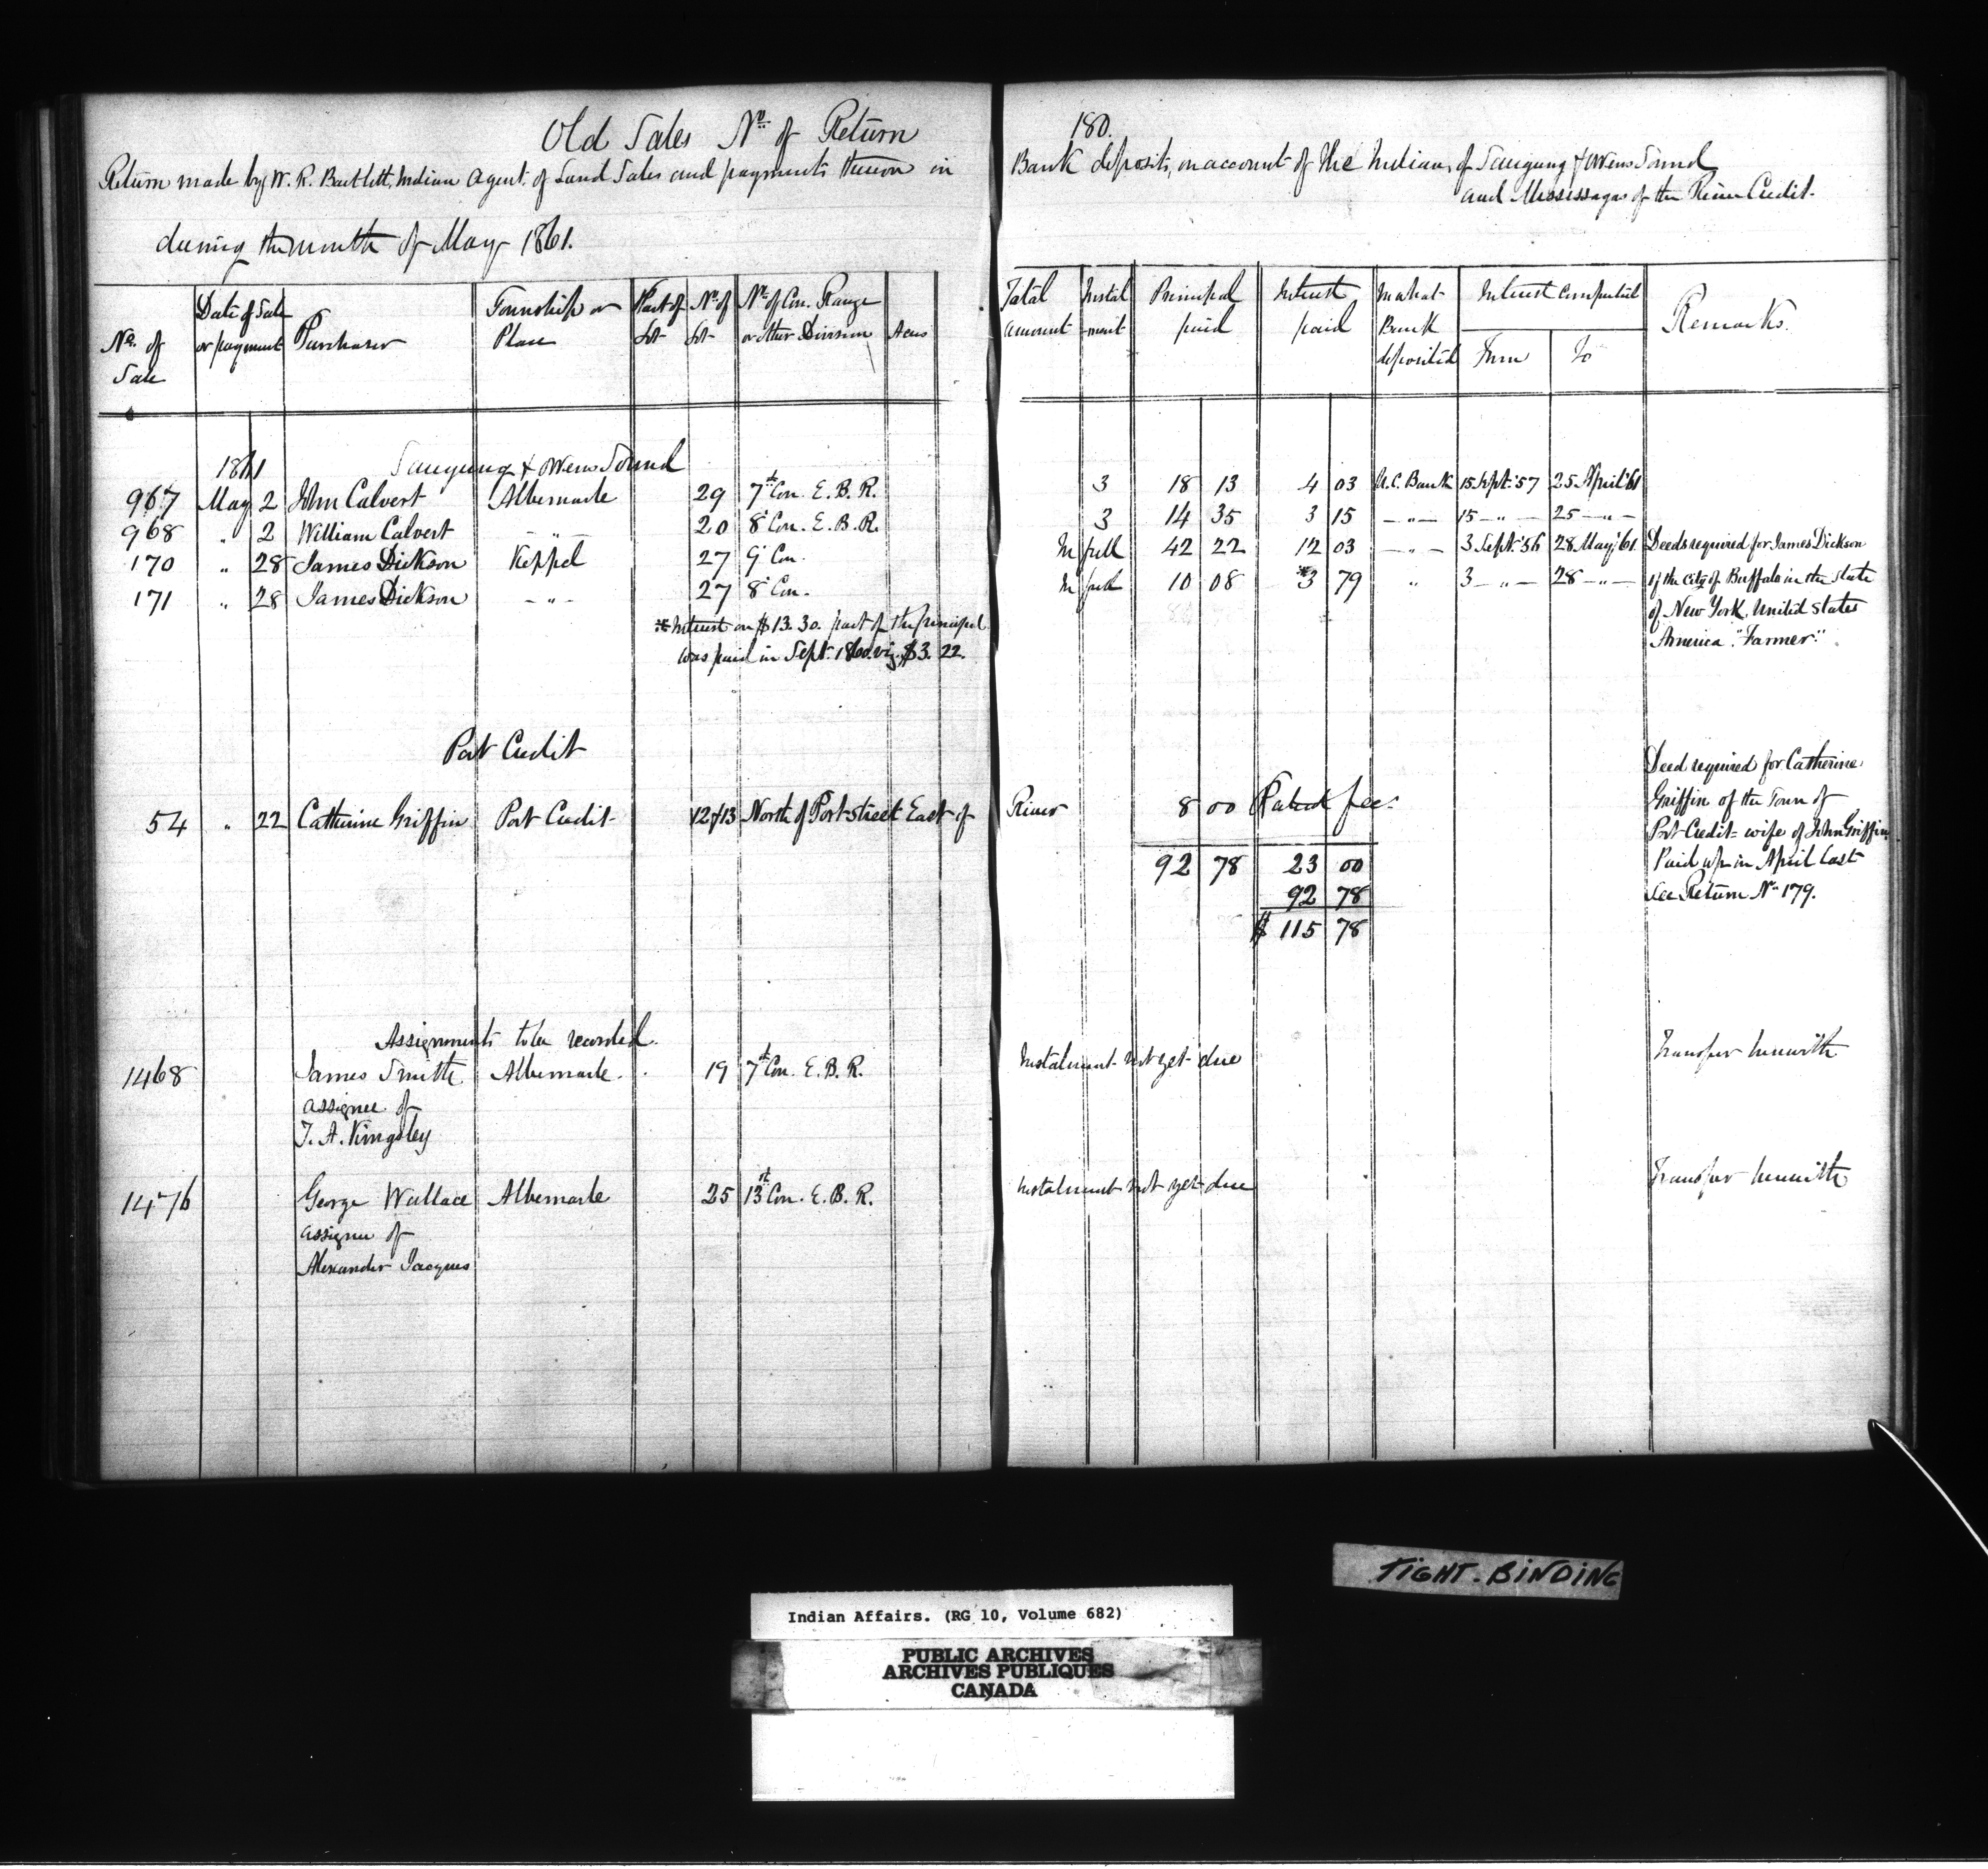 Old Sales No. of Return 180.
Return made by W. R. Bartlett, Indian Agent, of Land Sales and payments thereon in Bank deposits, on account of the Indians of Saugeeng & Owens Sound
and Mississagas of the River Credit.
during the month of May 1861.
No. of Sale | Date of Sale or payment | Purchaser | Township or Place | Part of Lot | No. of Lot | No. of Con. Range or other Division | Acres | Total amount | Instalment | Principal paid | Interest paid | In what Bank deposited | Interest computed From | To | Remarks.
1861 Saugeeng & Owens Sound
967 May 2 John Calvert Albemarle 29 7th Con. E. B. R. 3 18 13 4 03 U.C. Bank 15 Sept. '57 25 April '61
968 " 2 William Calvert - " - 20 8 Con. E. B. R. 3 14 35 3 15 - " - 15 - " - 25 - " -
170 " 28 James Dickson Keppel 27 9 Con. In full 42 22 12 03 - " - 3 Sept. '56 28 May '61 Deeds required for James Dickson
171 " 28 James Dickson - " - 27 8 Con. In full 10 08 *3 79 " 3 - " - 28 - " - of the City of Buffalo in the State
of New York, United States
America. "Farmer."
* Interest on $13.30. part of the principal
was paid in Sept. 1860. viz. $3.22.
Port Credit
Deed required for Catherine
54 " 22 Catherine Griffin Port Credit 12 & 13 North of Port Street East of River 8 00 Patent fee. Griffin of the Town of
Port Credit = wife of John Griffin
92 78 23 00 Paid up in April last
92 78 See Return No. 179.
$ 115 78
Assignments to be recorded.
1468 James Smith Albemarle. 19 7th Con. E. B. R. Instalment not yet due Transfer herewith
assignee of
T. A. Kingsley
1476 George Wallace Albemarle 25 13th Con. E. B. R. Instalment not yet due Transfer herewith
assignee of
Alexander Jacques
TIGHT-BINDING
Indian Affairs. (RG 10, Volume 682)
PUBLIC ARCHIVES
ARCHIVES PUBLIQUES
CANADA